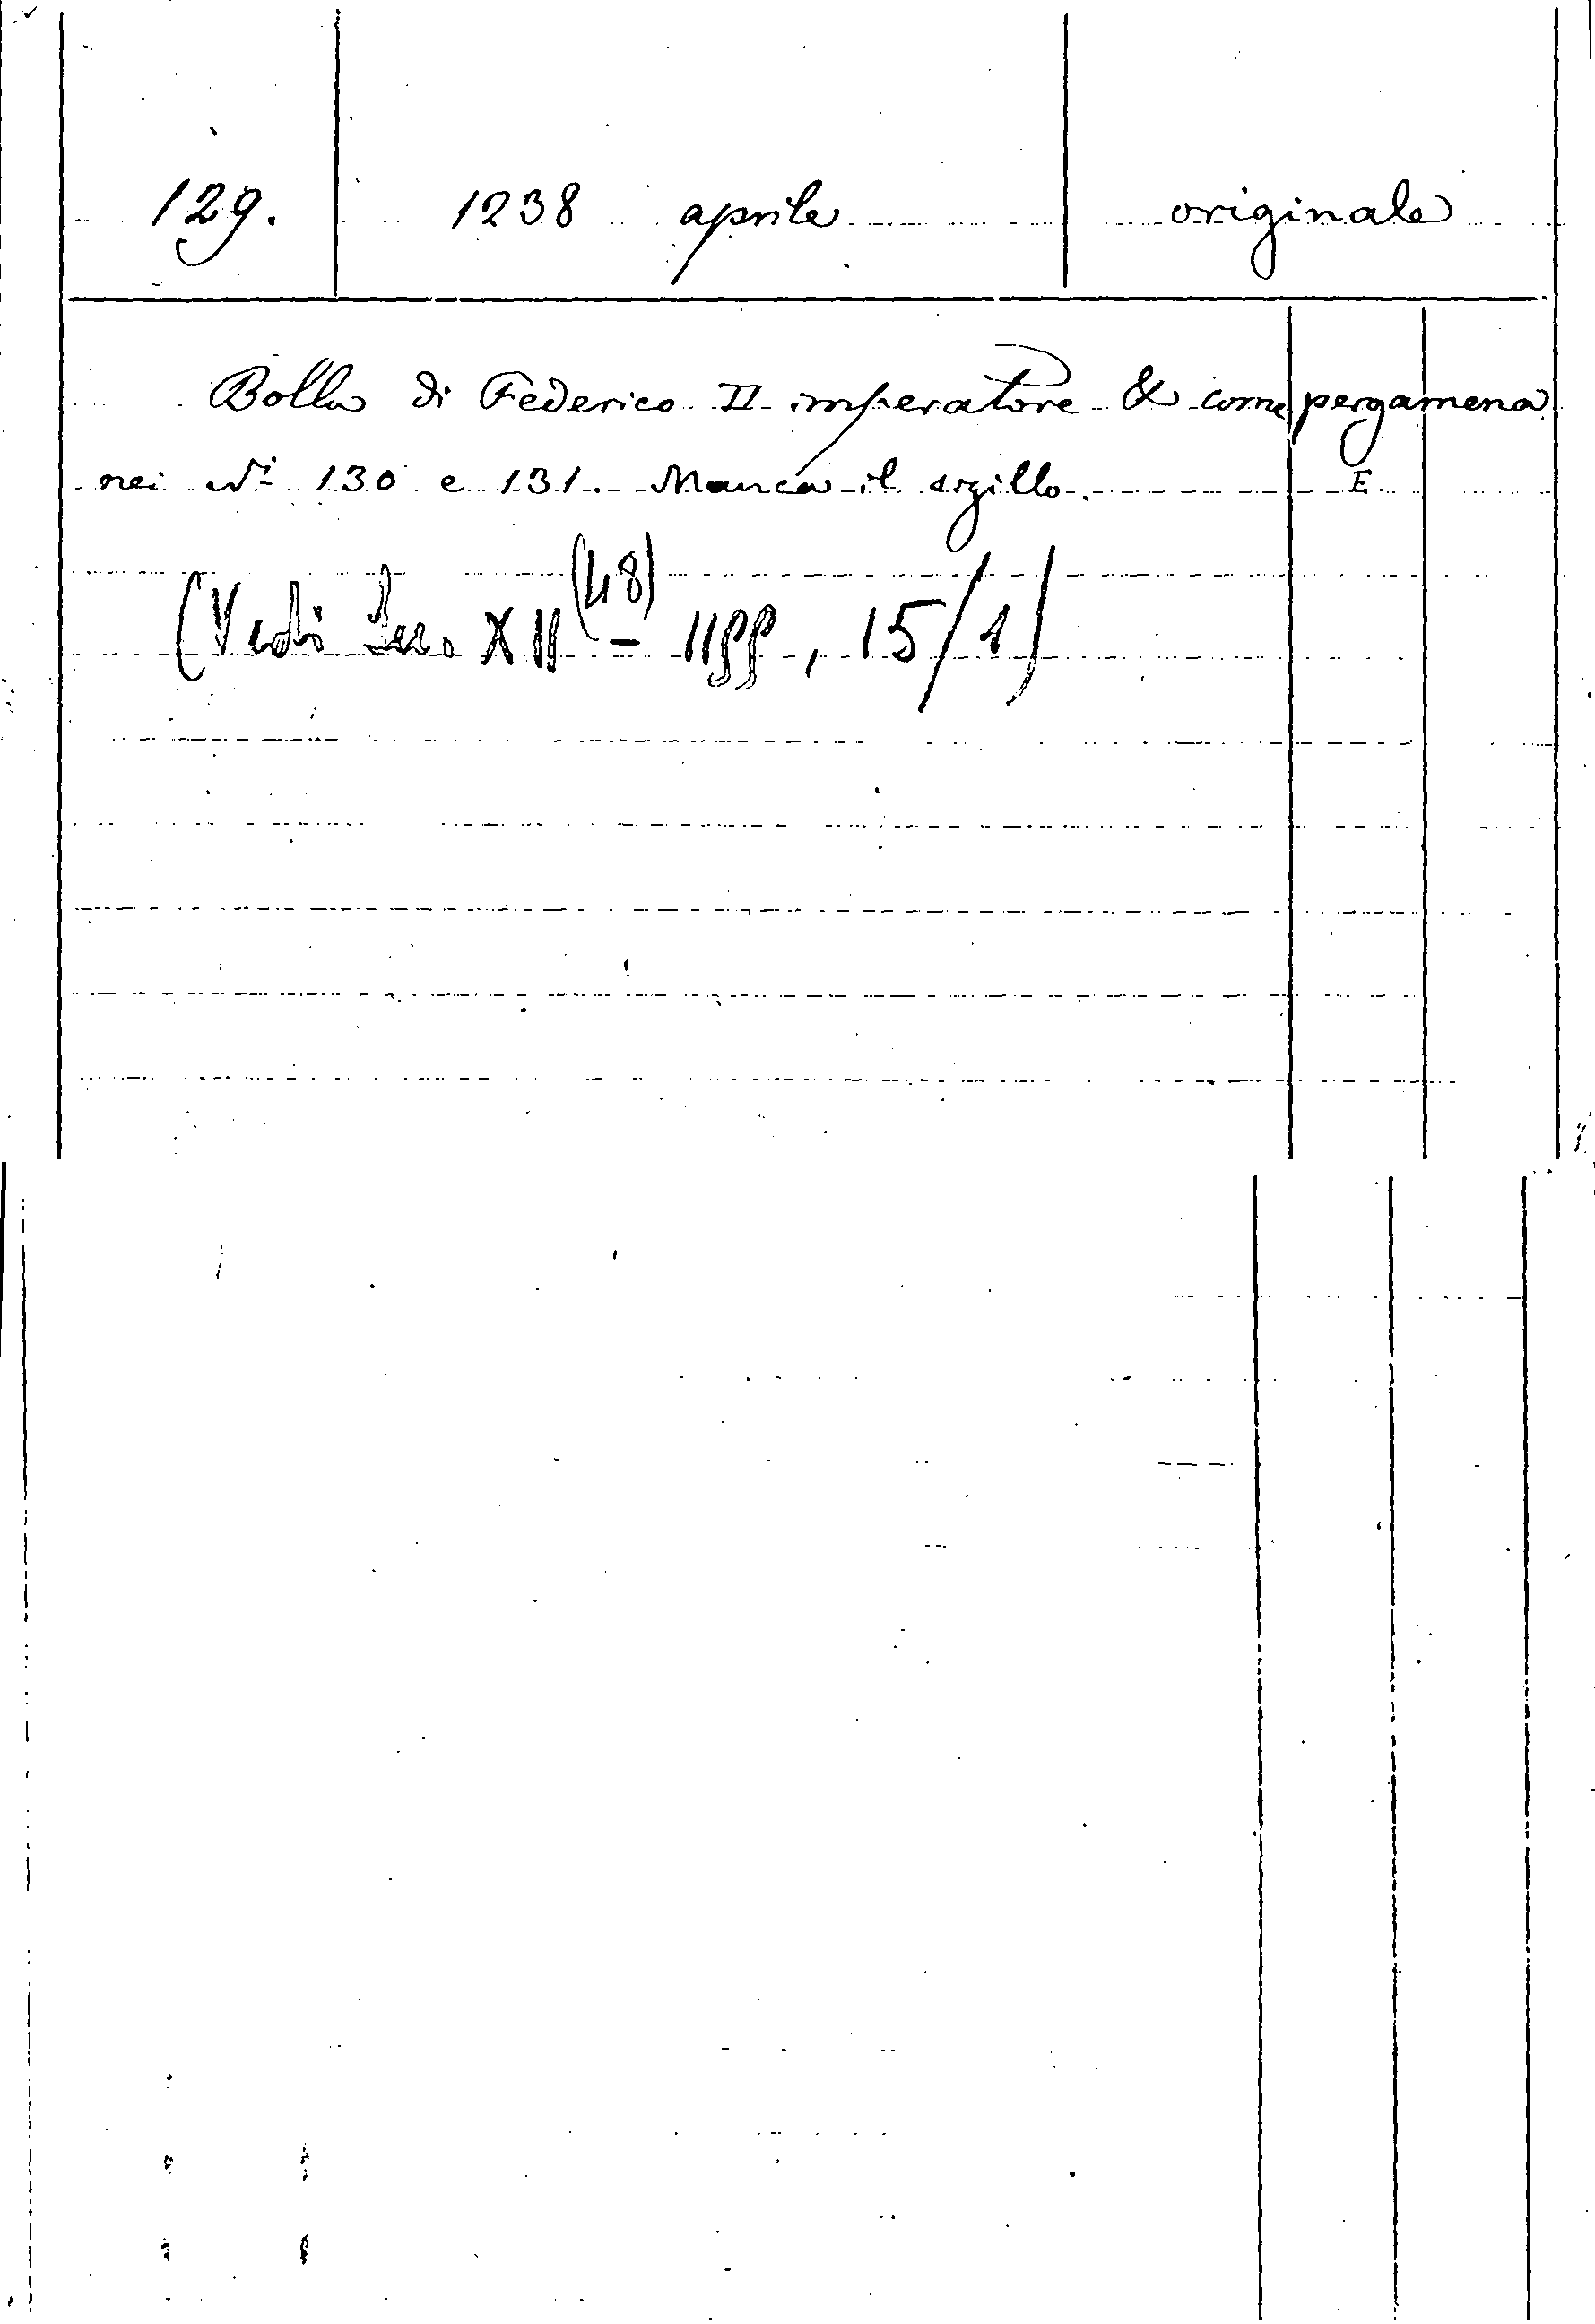 129. 1238 aprile originale
Bolla di Federico II imperatore & come pergamena
nei Ni 130 e 131. Manca il sigillo. E
(48)
(Vedi XII - 1199, 15/1)